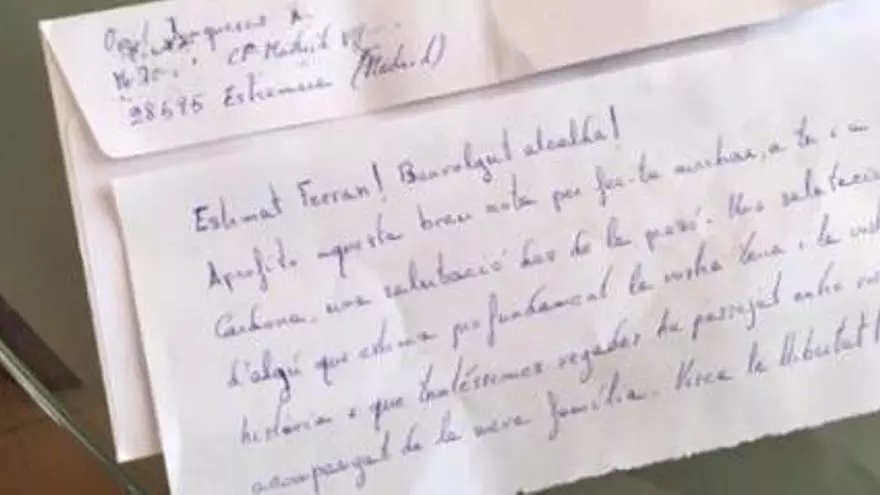 Oriol Junqueras
CP Madrid VII
28595 Estremera (Madrid)
Estimat Ferran! Benvolgut alcalde!
Aprofito aquesta breu nota per fer-te arribar, a tu i a
Cardona, una salutació des de la presó. Una salutació
d'algú que estima profundament la vostra terra i la
història i que moltíssimes vegades ha passejat entre
acompanyat de la meva família. Visca la llibertat!